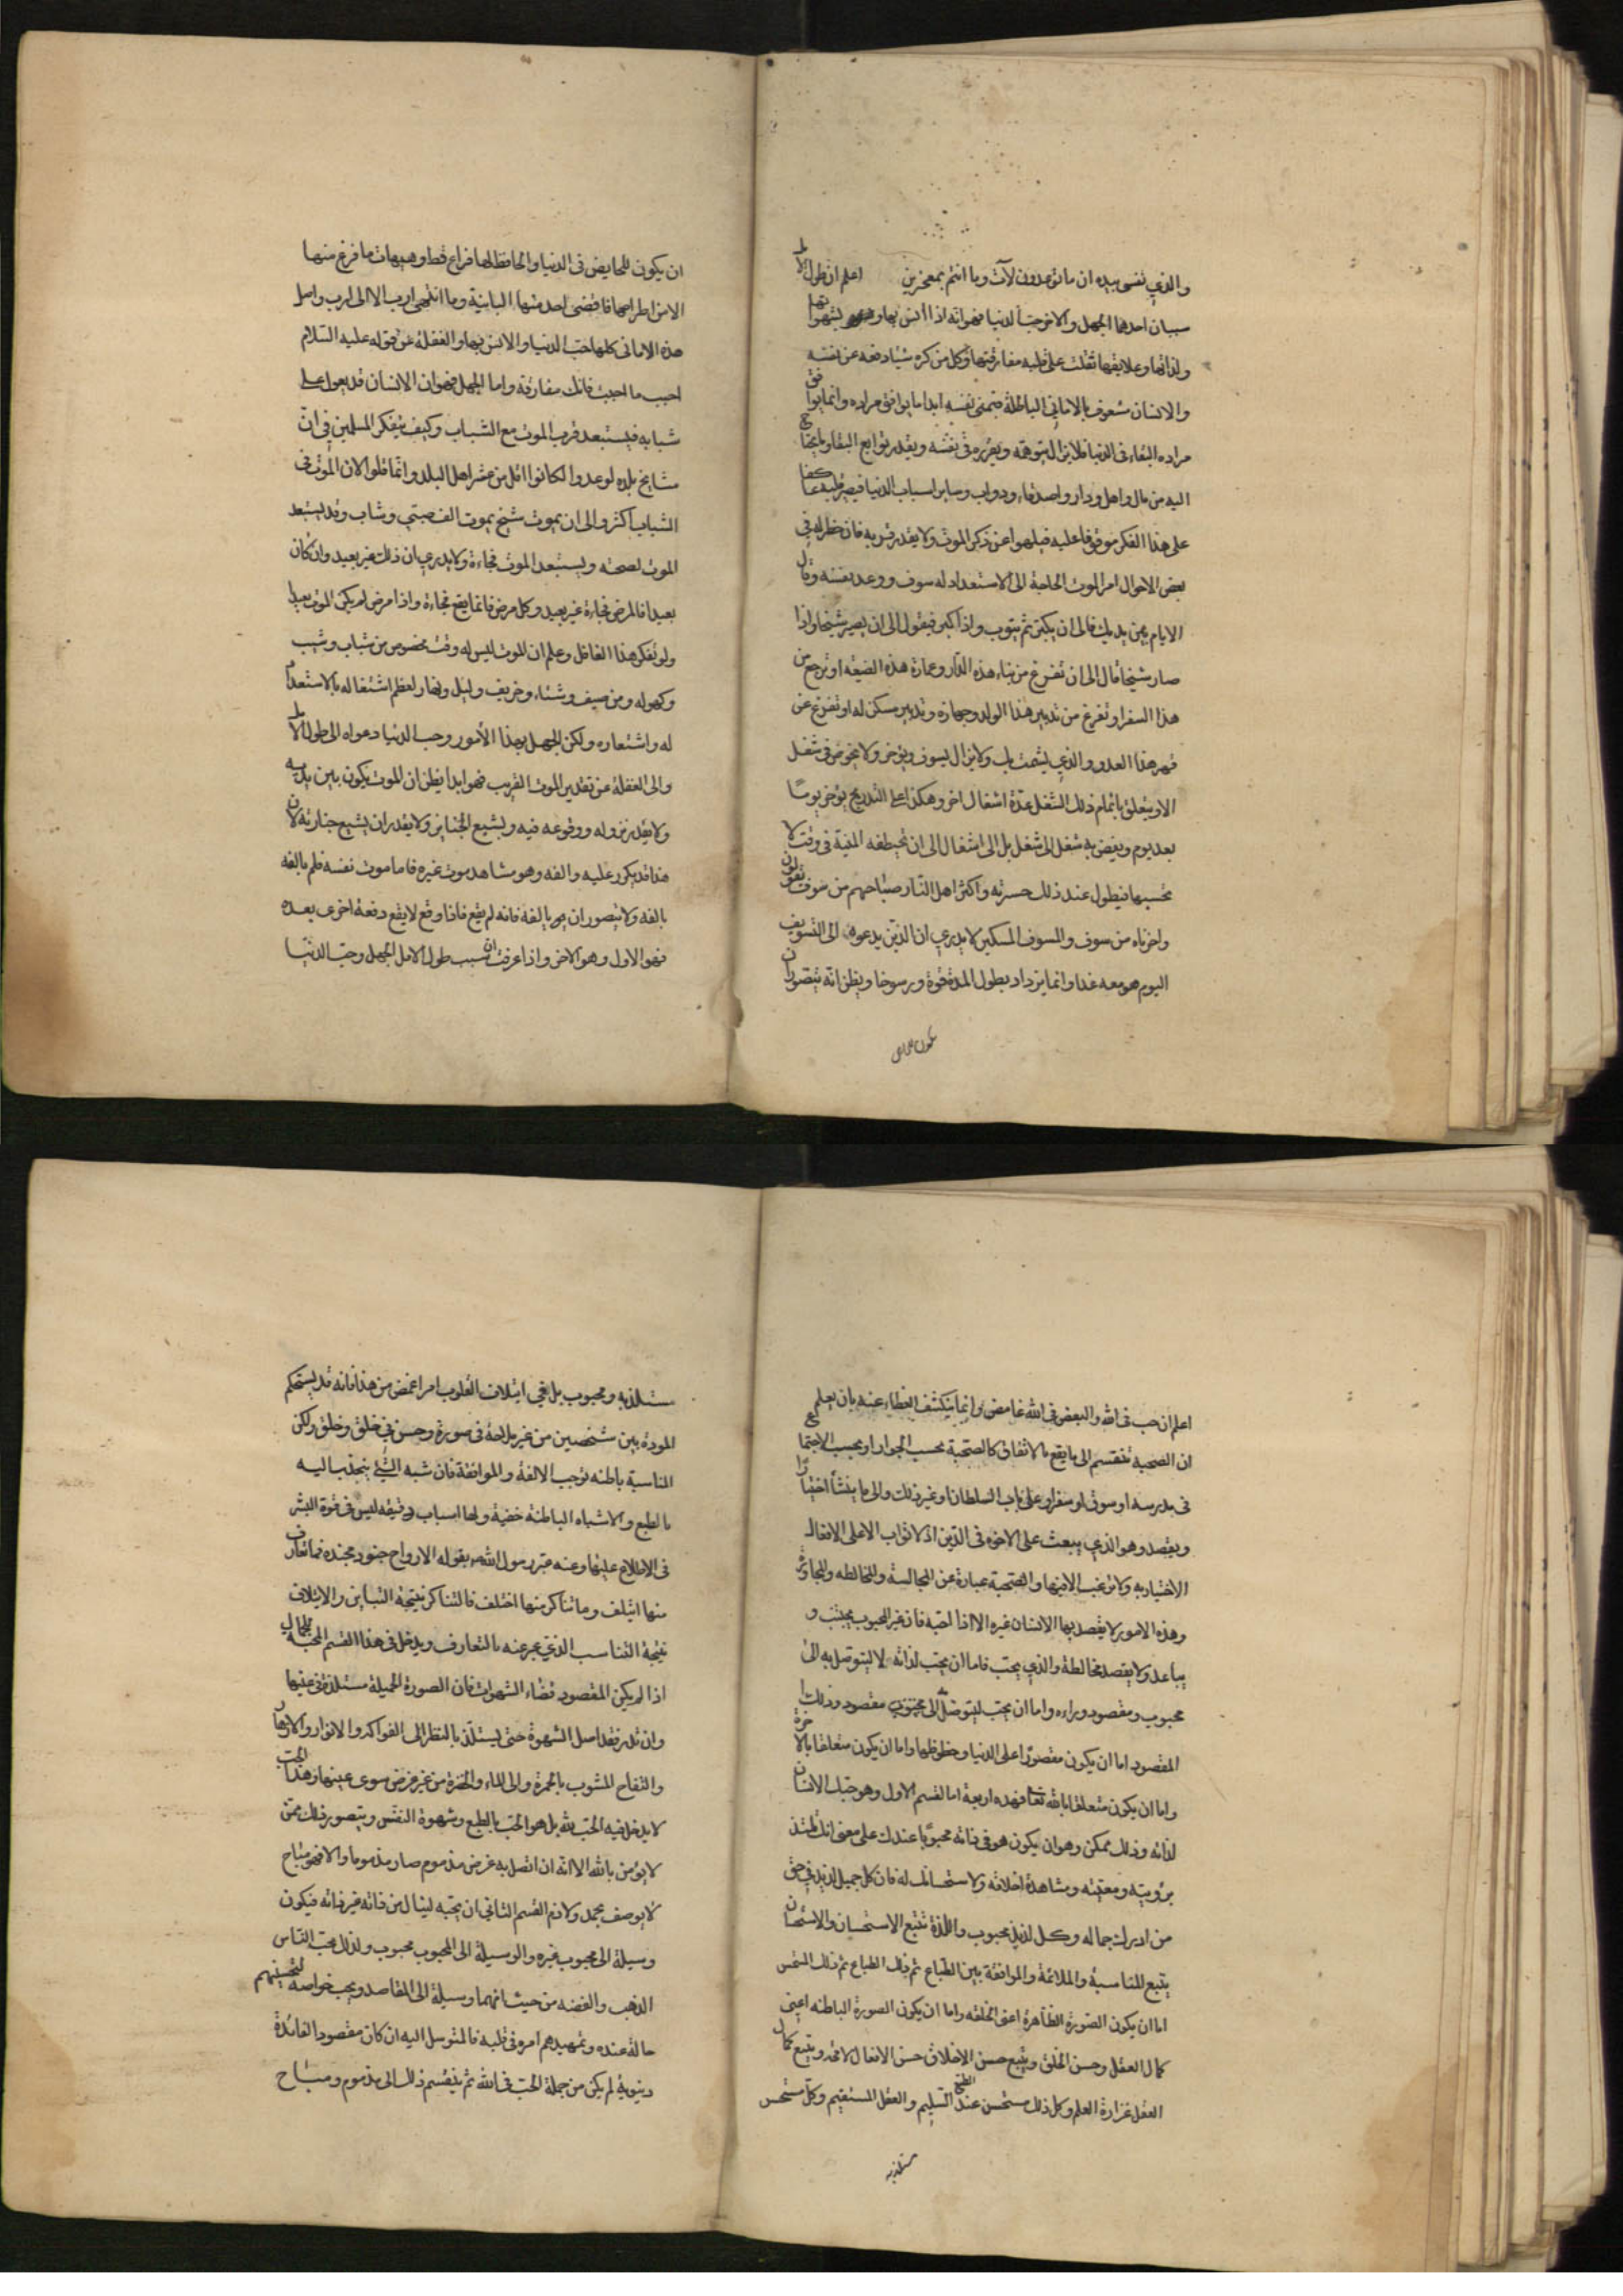 والذي نفسى بيده ان ما توعدون لآت وما انتم بمعجزين اعلم ان طول الامل
سببان احدهما الجهل والاخر حب الدنيا فهو انه اذا انس بها وبشهواتها
ولذاتها وعلايقها ثقلت على قلبه مفارقتها وكل من كره شيئا دفعه عن نفسه
والانسان مشعوف بالامانى الباطلة فيمنى نفسه ابدا ما يوافق مراده وانما يوافق
مراده البقاء فى الدنيا فلا يزال يتوهمه ويقرره فى نفسه ويقدر توابع البقاء وما يحتاج
اليه من مال واهل ودار واصدقاء ودواب وساير اسباب الدنيا فيصير قلبه عاكفا
على هذا الفكر موقوفا عليه فيلهوا عن ذكر الموت ولا يقدر قربه فان خطر له فى
بعض الاحوال امر الموت الحاجة الى الاستعداد له سوف ووعد نفسه وقال
الايام بين يديك فالى ان يكبر ثم يتوب واذا كبر فيقول الى ان يصير شيخا واذا
صار شيخا قال الى ان تفرغ من بناء هذه الدار وعمارة هذه الضيعه او ترجع من
هذا السفر او تفرغ من تدبير هذا الولد وجهازه وتدبير مسكن له او تفرغ عن
قهر هذا العدو والذي يشمت بك ولا يزال يسوف ويؤخر ولا يخوض فى شغل
الا ويتعلق باتمام ذلك الشغل عدة اشغال اخر وهكذا على التدريج يؤخر يوما
بعد يوم ويفضى به شغل الى شغل بل الى اشغال الى ان تخطفه المنية فى وقت لا
تحسبها فيطول عند ذلك حسرته واكثر اهل النار صياحهم من سوف يقولون
واحزناه من سوف والمسوف المسكين لا يدري ان الذين يدعوه الى التسويف
اليوم هو معه غدا وانما يزداد بطول المدة قوة ورسوخا ويظن انه يتصوران
ان يكون للخايض فى الدنيا والحافظ لها فراغ قط وهيهات ما فرغ منها
الا من اطرحها فما قضى احد منها البانية وما انتهى ارب الا الى ارب واصل
هذه الامانى كلها حب الدنيا والانس بها والغفلة عن قوله عليه السلام
احبب ما احببت فانك مفارقه واما الجهل فهو ان الانسان قد يعول على
شبابه فيستبعد قرب الموت مع الشباب وكيف يتفكر المسلمين فى ان
مشايخ بلده لو عدوا لكانوا اقل من عشر اهل البلد وانما قلوا لان الموت فى
الشباب اكثر والى ان يموت شيخ يموت الف صبي وشاب وقد يستبعد
الموت لصحته ويستبعد الموت فجاءة ولا يدري ان ذلك غير بعيد وان كان
بعيدا فالمرض فجاءة غير بعيد وكل مرض فانما يقع فجاءة واذا مرض لم يكن الموت بعيدا
ولو تفكر هذا الغافل وعلم ان الموت ليس له وقت مخصوص من شباب وشيب
وكهوله ومن صيف وشتاء وخريف وليل ونهار لعظم اشتغاله بالاستعداد
له واشتعاره ولكن الجهل بهذا الأمور وحب الدنيا دعواه الى طول الامل
والى الغفلة عن تقدير الموت القريب فهو ابدا يظن ان الموت يكون بين يديه
ولا يقدر نزوله ووقوعه فيه ويشيع الجنايز ولا يقدر ان يشيع جنازته لان
هذا قد يكرر عليه والفه وهو مشاهد موت غيره فاما موت نفسه فلم يالفه
بالفه ولا يتصور ان يالفه فانه لم يقع فاذا وقع لا يقع دفعة اخرى بعده
فهو الاول وهو الاخر واذا عرفت ان سبب طول الامل الجهل وحب الدنيا
اعلم ان حب فى الله والبغض فى الله غامض وانما ينكشف الغطاء عنه بان يعلم
ان الصحبة تنقسم الى ما يقع بالاتفاق كالصحبة بحسب الجوار او بحسب الاجتماع
فى مدرسه او سوق او سفر او على باب السلطان او غير ذلك والى ما ينشأ اختيارا
ويقصد وهو الذي يبعث على الاخوه فى الدين اذ لا ثواب الا على الافعال
الاختياريه ولا ترغيب الا فيها والصحبة عبارة عن المجالسة والمخالطه والمجاورة
وهذه الامور لا يقصد بها الانسان غيره الا اذا احبه فان غير المحبوب يجتنب و
يباعد ولا يقصد مخالطة والذي يحب فاما ان يحب لذاته لا ليتوصل به الى
محبوب ومقصود وراءه واما ان يحب ليتوصل الى محبوب مقصود وذلك
المقصود اما ان يكون مقصورا على الدنيا وحظوظها واما ان يكون متعلقا بالاخرة
واما ان يكون متعلقا بالله تعا فهذه اربعة اما القسم الاول وهو حبك الانسان
لذاته وذلك ممكن وهو ان يكون هو فى ذاته محبوبا عندك على معنى انك تلتذ
برؤيته ومعيته ومشاهدة اخلاقه ولاستحسانك له فان كل جميل لذيذ فى حق
من ادرك جماله وكل لذيذ محبوب واللذة تتبع الاستحسان والاستحسان
يتبع المناسبة والملائمة والموافقة بين الطباع ثم ذلك الطباع ثم ذلك المستحسن
اما ان يكون الصورة الظاهرة اعنى الخلقه واما ان يكون الصورة الباطنه اعنى
كمال العقل وحسن الخلق ويتبع حسن الاخلاق حسن الافعال لا محة ويتبع كمال
العقل غزارة العلم وكل ذلك مستحسن عند الطبع السليم والعقل المستقيم وكل مستحسن
مستلذ به
مستلذ به ومحبوب بل فى ايتلاف القلوب امر اغمض من هذا فانه قد يستحكم
المودة بين شخصين من غير ملاحة فى صورة وحسن فى خلق وخلق ولكن
المناسبة باطنه توجب الالفة والموافقة فان شبه الشئ ينجذب اليه
بالطبع والاشباه الباطنة خفية ولها اسباب دقيقه ليس فى قوة البشر
فى الاطلاع عليها وعنه عبر رسول الله بقوله الارواح جنود مجنده فما تعارف
منها ايتلف وما تناكر منها اختلف فالتناكر نتيجة التباين والايتلاف
نتيجة التناسب الذي عبر عنه بالتعارف ويدخل فى هذا القسم المحبة للجمال
اذا لم يكن المقصود قضاء الشهوات فان الصورة الجميلة مستلذة فى عينها
وان قدر فقد اصل الشهوة حتى يستلذ بالنظر الى الفواكه والانوار والازهار
والتفاح المشوب بالحمرة والى الماء والخضرة من غير غرض سوى عينها وهذا الحب
لا يدخل فيه الحب لله بل هو الحب بالطبع وشهوة النفس ويتصور ذلك ممن
لا يؤمن بالله الا انه ان اتصل به غرض مذموم صار مذموما والا فهو مباح
لا يوصف بحمد ولا ذم القسم الثاني ان يحبه لينال من ذاته غير ذاته فيكون
وسيلة الى محبوب غيره والوسيلة الى المحبوب محبوب ولذلك يحب الناس
الذهب والفضه من حيث انهما وسيلة الى المقاصد ويحب خواصه لتحسينهم
حاله عنده وتمهيدهم امره فى قلبه فالمتوسل اليه ان كان مقصود الفائدة
دينوية لم يكن من جملة الحب فى الله ثم ينقسم ذلك الى مذموم ومباح